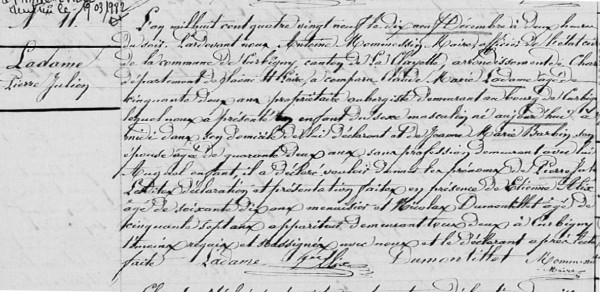 19 03 1982
Ladame
Pierre Julien
L'an mil huit cent quatre vingt neuf le dix neuf Décembre à deux heures
du soir. Par devant nous Antoine Mommessin Maire, officier de l'état civil
de la commune de Curbigny, canton de La Clayette, arrondissement de Charolles
département de Saône et Loire, a comparu Marie Ladame âgé de
cinquante deux ans propriétaire aubergiste demeurant au bourg de Curbigny
lequel nous a présenté un enfant du sexe masculin né aujourd'hui à
midi dans son domicile de lui déclarant et de Jeanne Marie Barbin son
épouse âgée de quarante deux ans sans profession demeurant avec lui
Auquel enfant, il a déclaré vouloir donner les prénoms de Pierre Julien
Lesdites déclaration et présentation faites en présence de Etienne Alix
âgé de soixante dix ans menuisier et Nicolas Dumontillet âgé de
cinquante sept ans appariteur demeurant tous deux à Curbigny
témoins requis et soussignés avec nous et le déclarant après lecture
faite Ladame Alix Dumontillet Mommessin
Maire